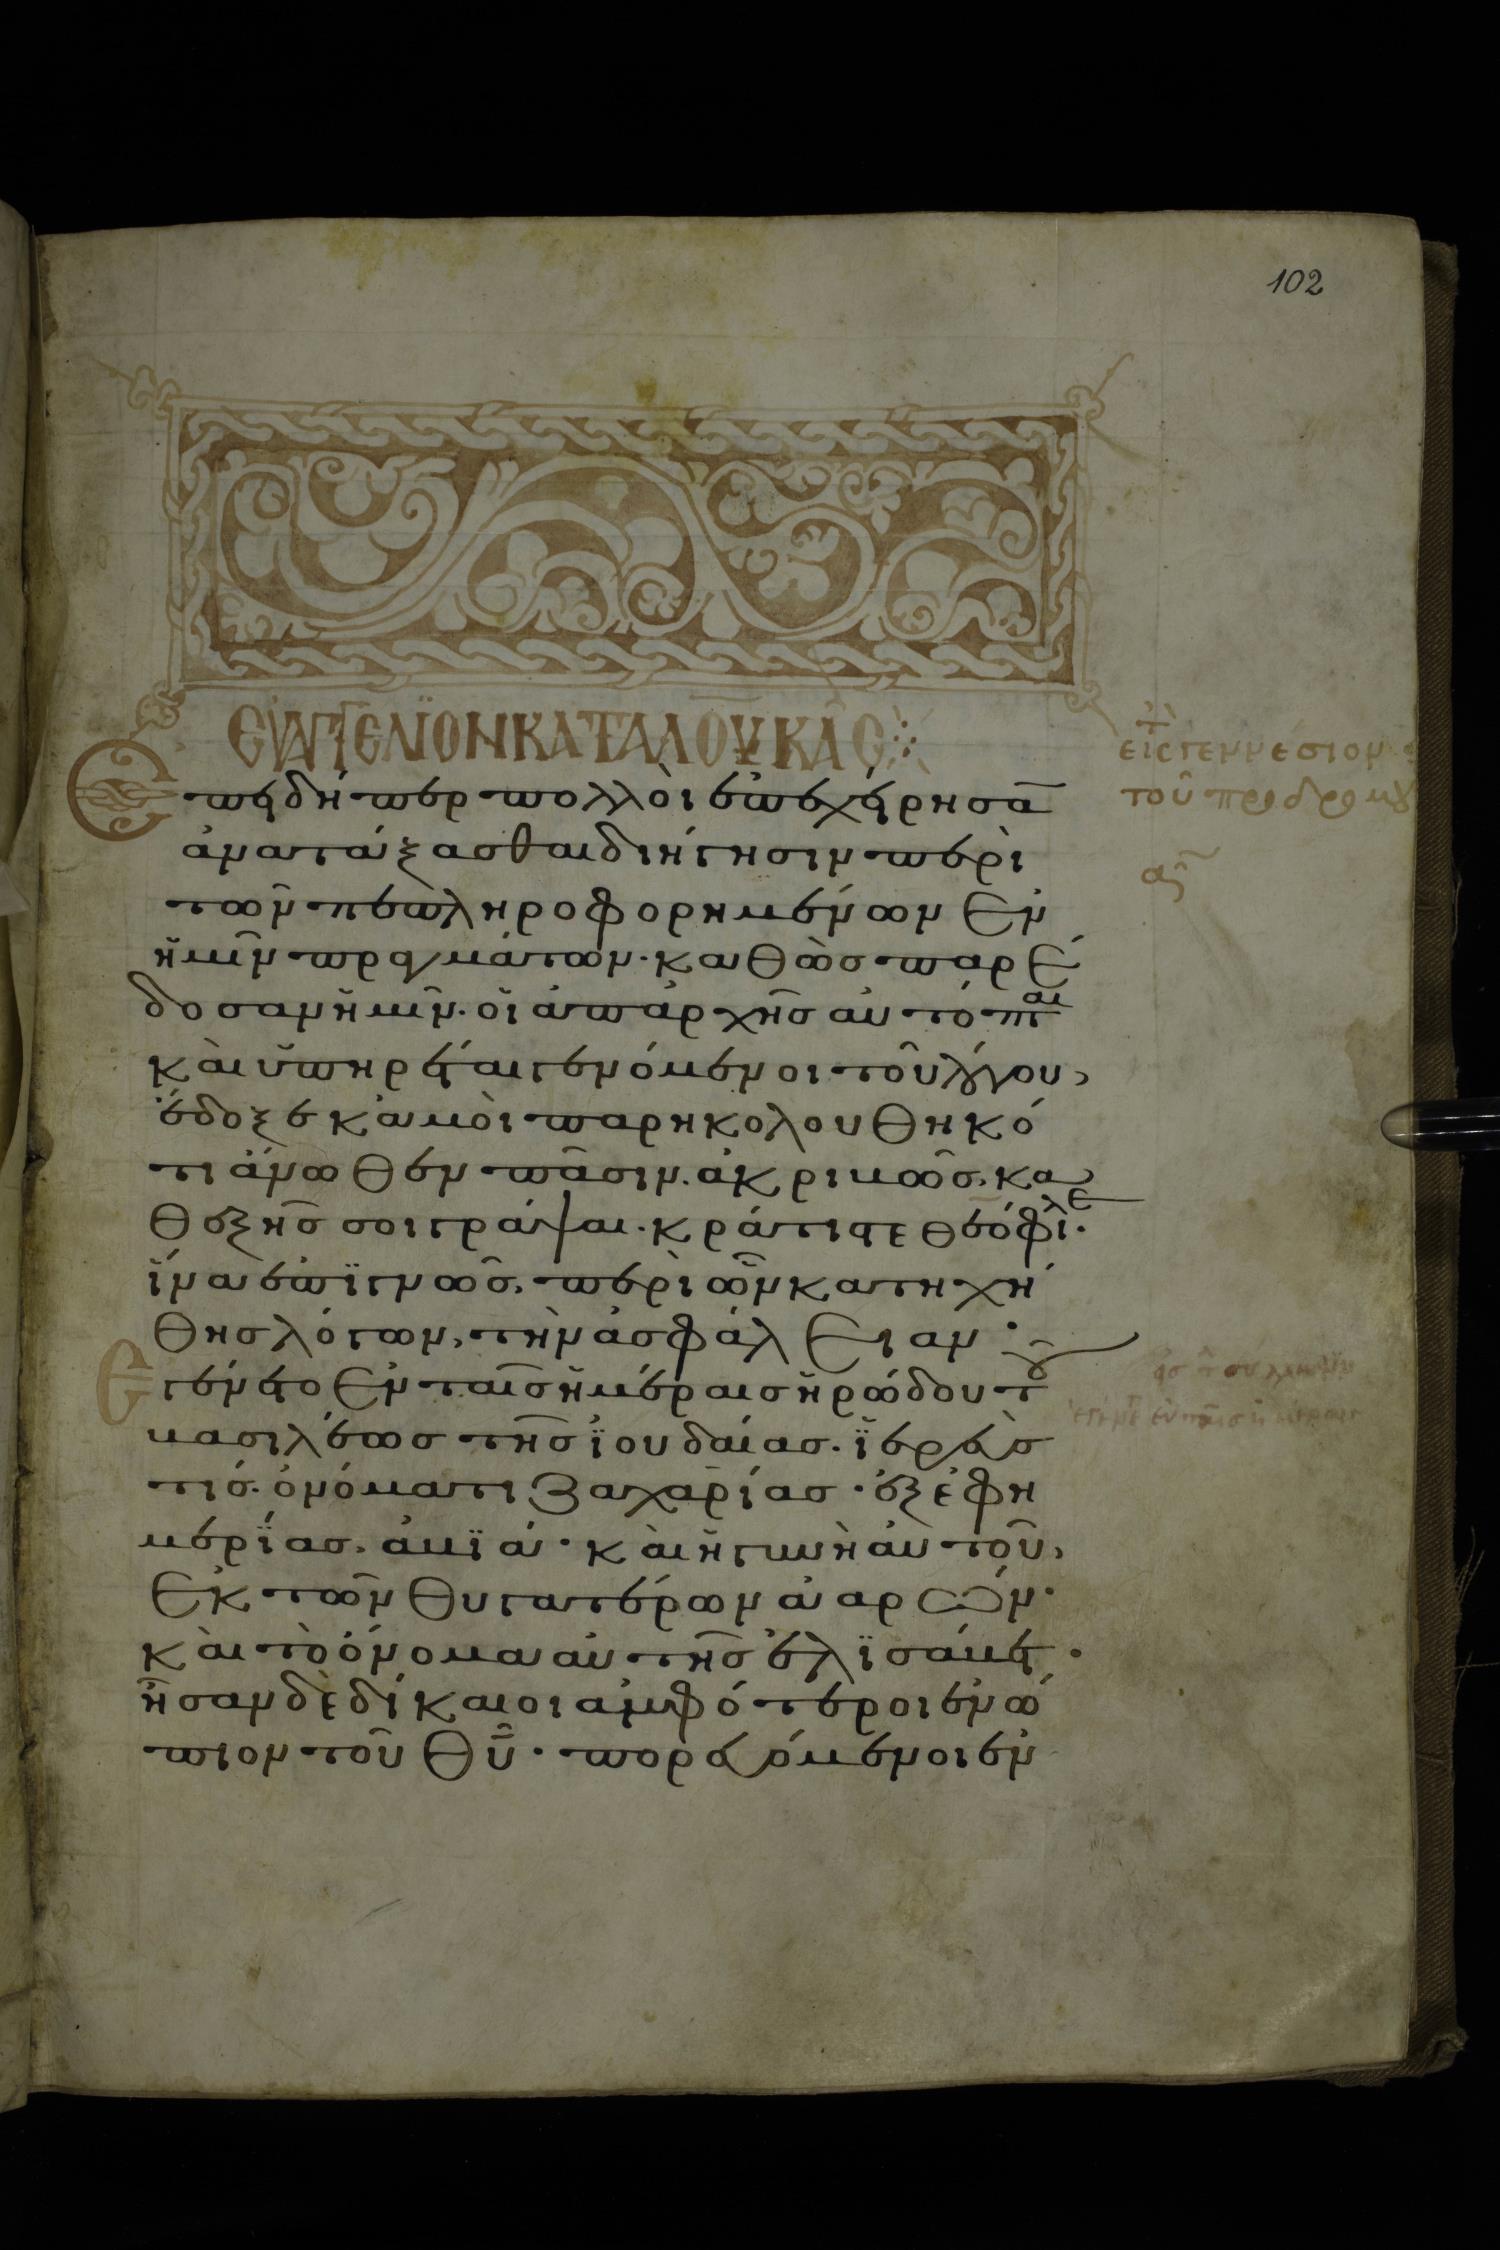 102
ΕΥΑΓΓΕΛΙΟΝ ΚΑΤΑ ΛΟΥΚΑΣ
εἰς γεννεσιον
τοῦ προδρομου
Ἐπειδήπερ πολλοὶ ἐπεχείρησα̅
ἀνατάξασθαι διήγησιν περὶ
τῶν πεπληροφορημένων ἐν
ἡμῖν πραγμάτων· καθὼς παρέ
δοσαν ἡμῖν· οἱ ἀπαρχῆς αὐτόπται
καὶ ὑπηρέται γενόμενοι τοῦ λόγου,
ἔδοξε κἀμοὶ παρηκολουθηκό
τι ἄνωθεν πᾶσιν. ἀκριβῶς, κα
θεξῆς σοι γράψαι· κράτιστε θεόφιλε·
ἵνα ἐπϊγνῶς, περὶ ὧν κατηχή
θης λόγων, τὴν ἀσφάλειαν·
Ἐγένετο ἐν ταῖς ἡμέραις ἡρώδου του
βασιλέως τῆς ϊουδαίας. ϊερεὺς
τίς· ὀνόματι Ζαχαρίας· ἐξ ἐφη
μερίας, ἀβϊά· καὶ ἡ γυνὴ αὐτοῦ,
ἐκ τῶν θυγατέρων ἀαρών·
καὶ τὸ ὄνομα αὐτῆς ἐλϊσάβετ·
ἦσαν δὲ δίκαιοι ἀμφότεροι ἐνώ
πιον τοῦ θῦ· πορευόμενοι ἐν